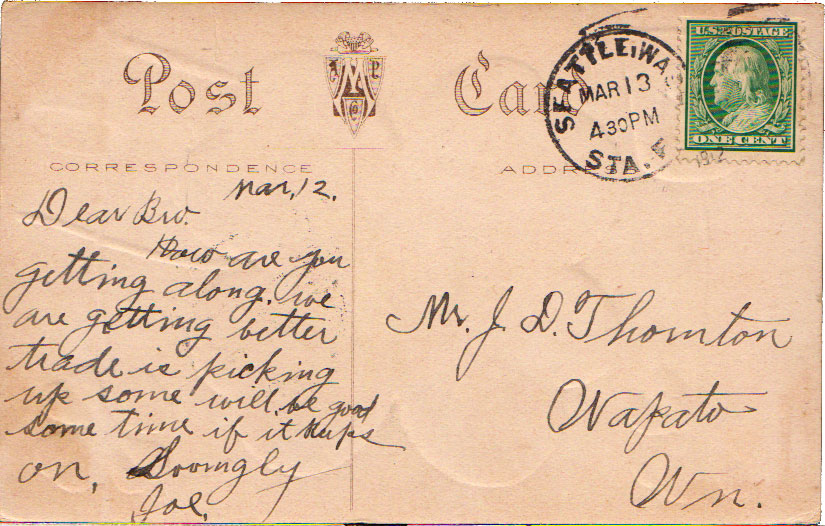 Post Card
CORRESPONDENCE
ADDRESS
SEATTLE, WASH.
MAR 13
4 30 PM
STA.
1912
U.S. POSTAGE
ONE CENT
Mar, 12.
Dear Bro.
How are you
getting along. we
are getting better
trade is picking
up some will be good
some time if it keeps
on,
Lovingly
Joe.
Mr. J. D. Thornton
Wapato
Wn.